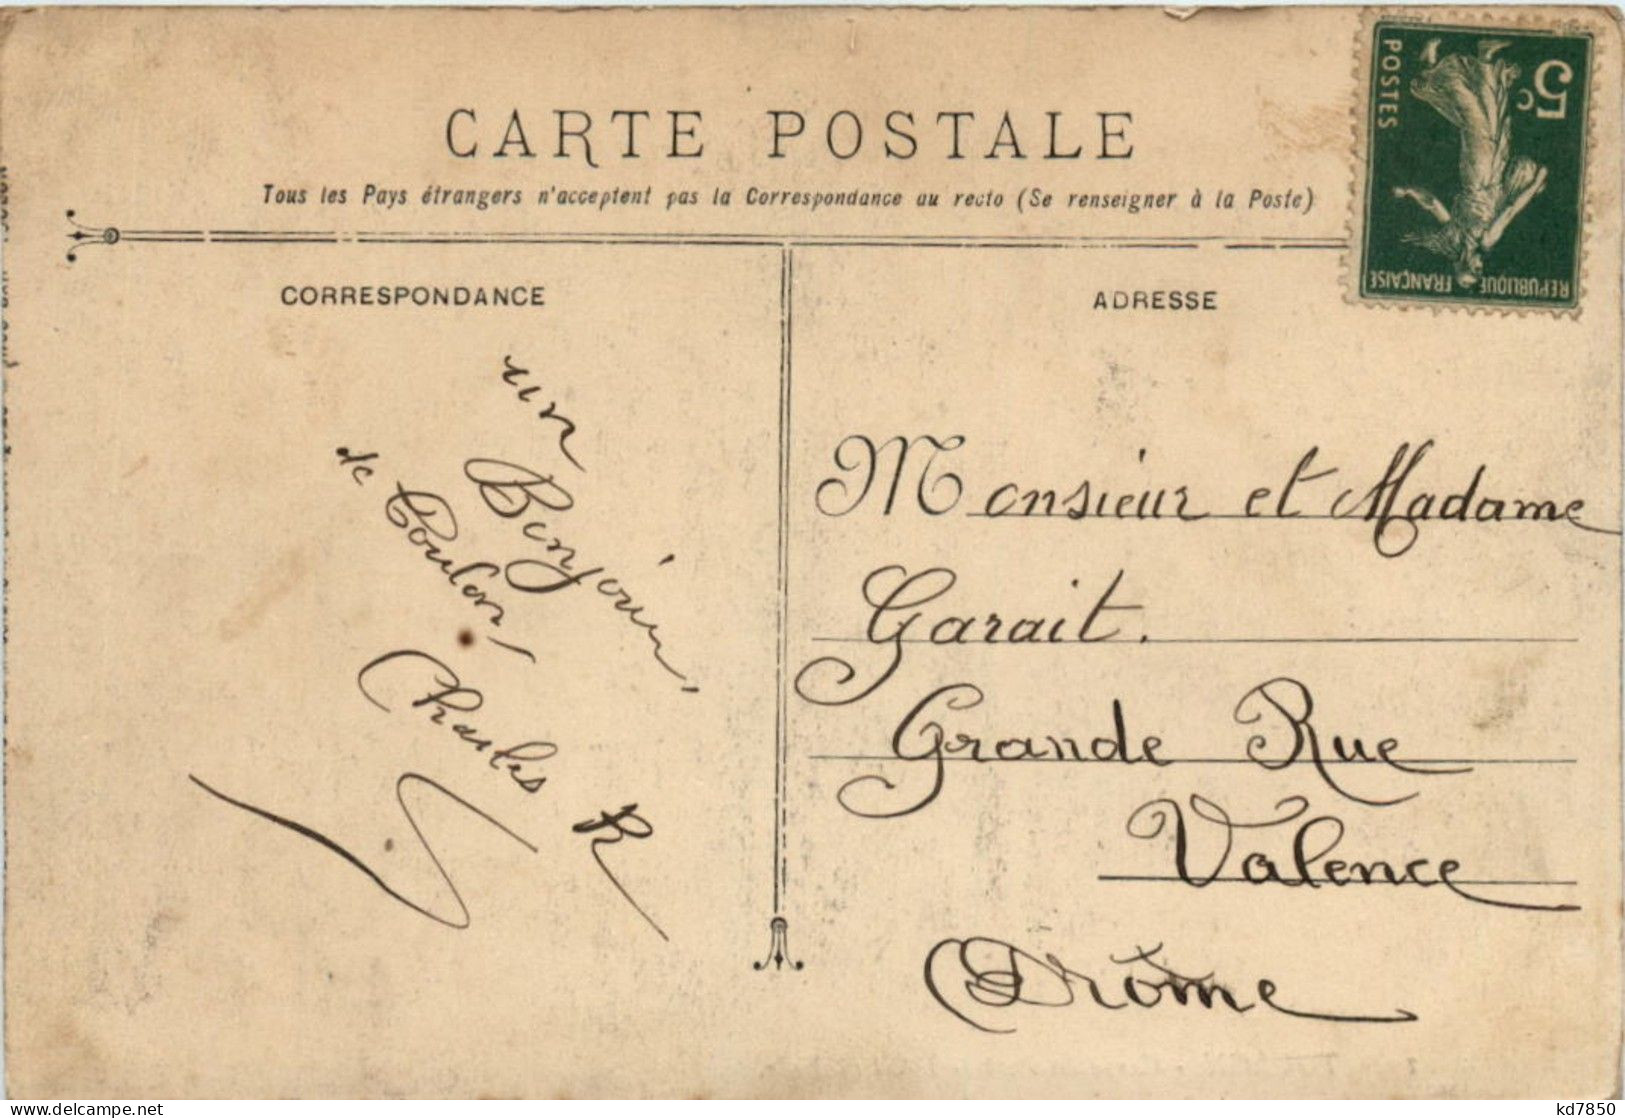 CARTE POSTALE
Tous les Pays étrangers n'acceptent pas la Correspondance au recto (Se renseigner à la Poste)
CORRESPONDANCE
un
Bonjour
de Toulon,
Charles R
ADRESSE
Monsieur et Madame
Garait.
Grande Rue
Valence
Drôme
5c
POSTES
REPUBLIQUE FRANÇAISE
kd7850